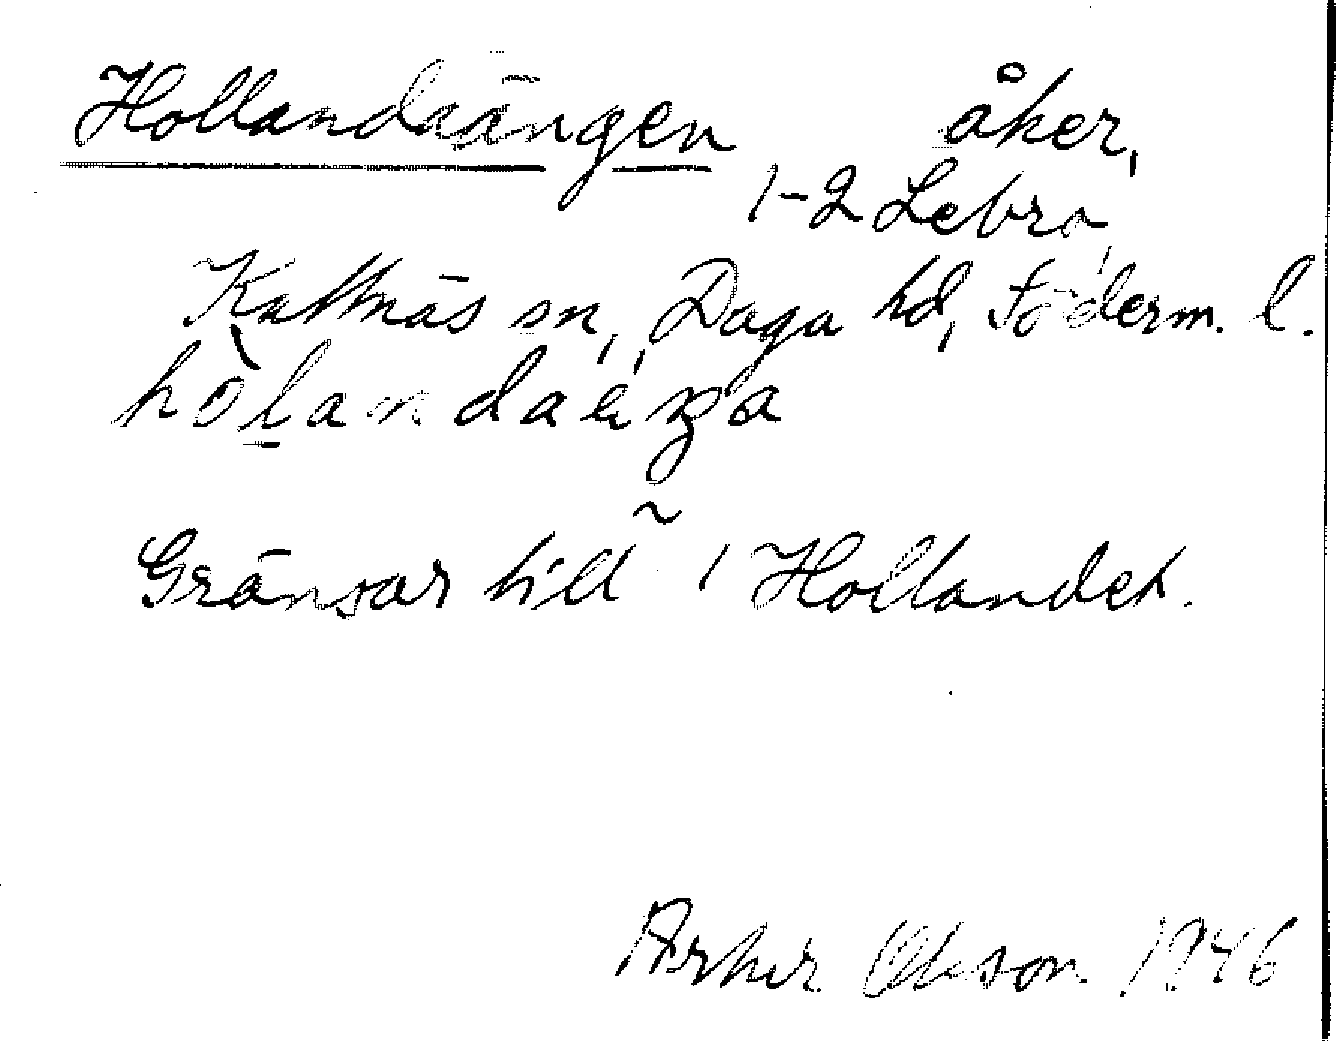 Hollandaängen åker,
1-2 Lebro,
Kattnäs sn, Daga hd, Söderm. l.
Gränsar till Hollandet.
Arthur Olsson 1946